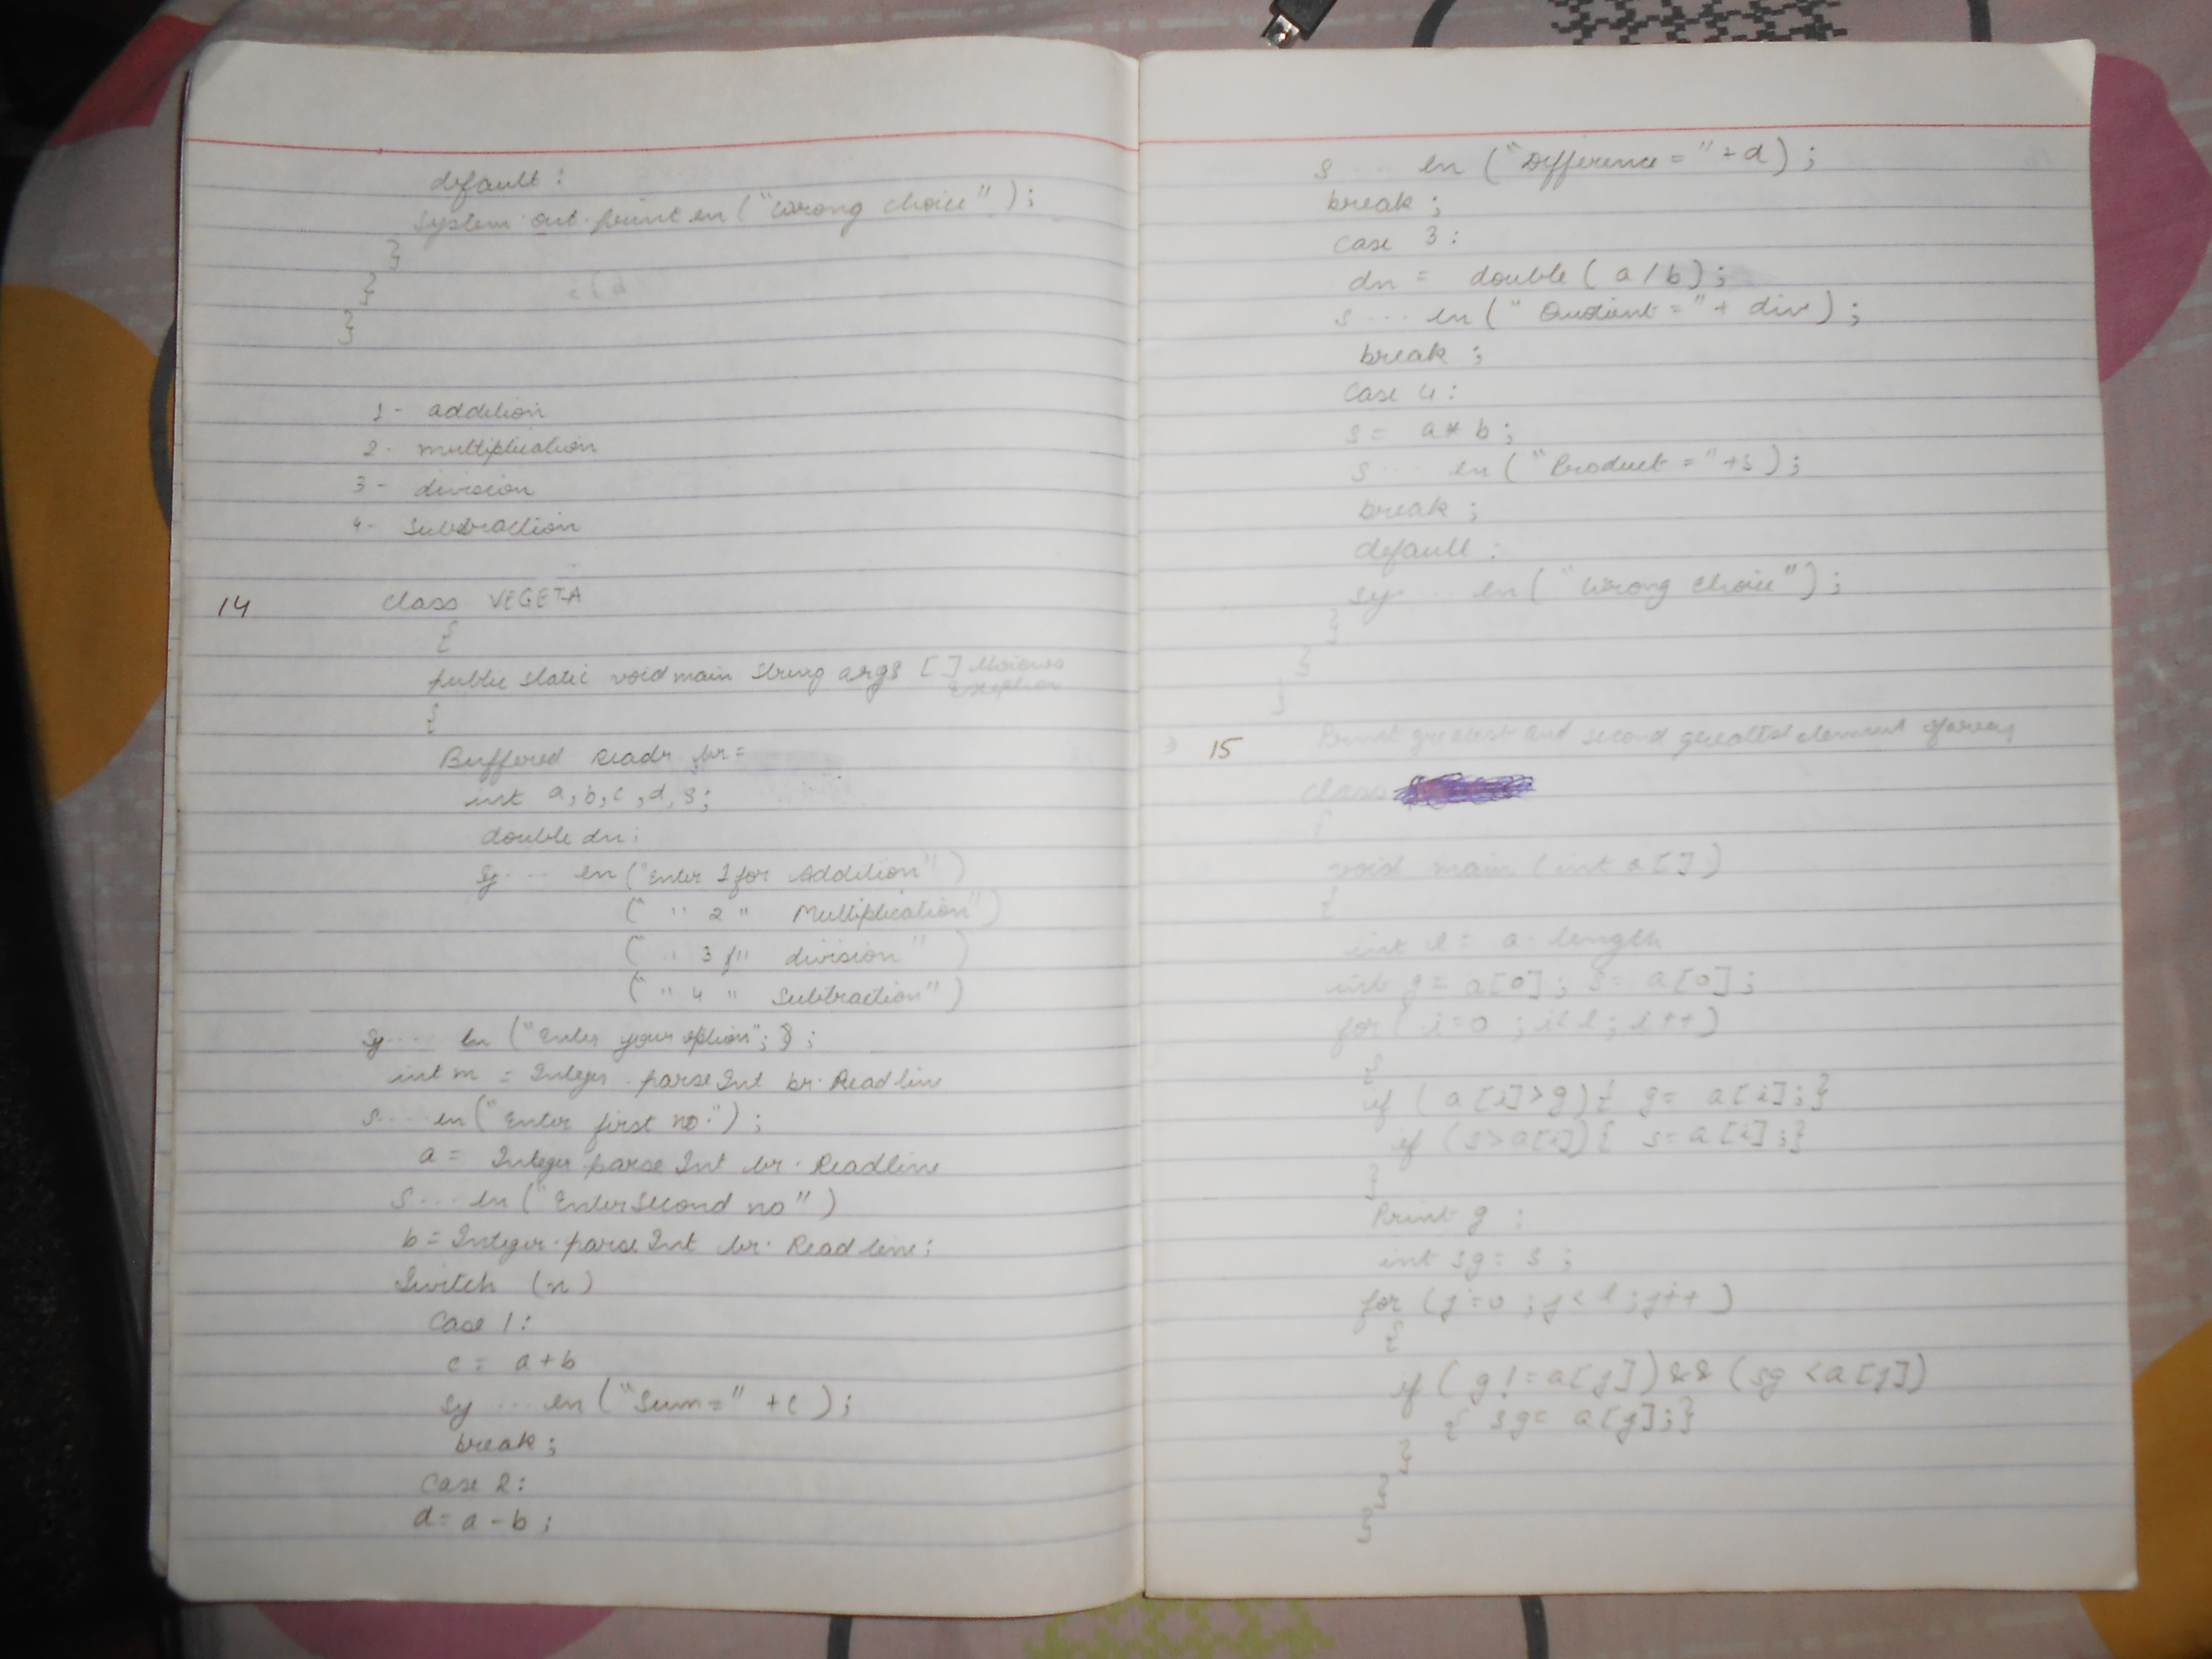 default :
System.out.println ("Wrong choice") ;
}
}
}
1 - addition
2 - multiplication
3 - division
4 - Subtraction
14 class VEGETA
{
public static void main String args [ ] throws
Exception
{
Buffered Readr br =
int a, b, c, d, s;
double dn ;
Sy .... ln ("Enter 1 for Addition")
(" " 2 " Multiplication")
(" " 3 " division")
(" " 4 " Subtraction")
Sy .... ln ("Enter your option"; } ;
int n = Integer . parseInt br. Readline
S .... ln ("Enter first no.") ;
a = Integer parse Int br. Readline
S .... ln ("Enter Second no")
b = Integer. parse Int br. Read line ;
Switch (n)
Case 1 :
c = a + b
Sy .... ln ("Sum =" + c ) ;
break ;
Case 2 :
d = a - b ;
S .... ln ("Difference =" + d) ;
break ;
Case 3 :
dn = double ( a / b ) ;
S .... ln (" Quotient =" + div ) ;
break ;
Case 4 :
s = a * b ;
S .... ln ("Product =" + s ) ;
break ;
default :
Sy .... ln ( "Wrong choice") ;
}
}
}
15 Print greatest and second element
class
{
void main (int a [ ] )
{
int l = a . length
int g = a [0] ; s = a [0] ;
for ( i = 0 ; i < l ; i ++ )
{
if ( a [i] > g ) { g = a [i] ; }
if ( s > a[i] ) { s = a [i] ; }
}
Print g ;
int sg = s ;
for (j = 0 ; j < l ; j++ )
{
if ( g != a [j] ) && (sg < a [j] )
{ sg = a [j] ; }
}
}
}